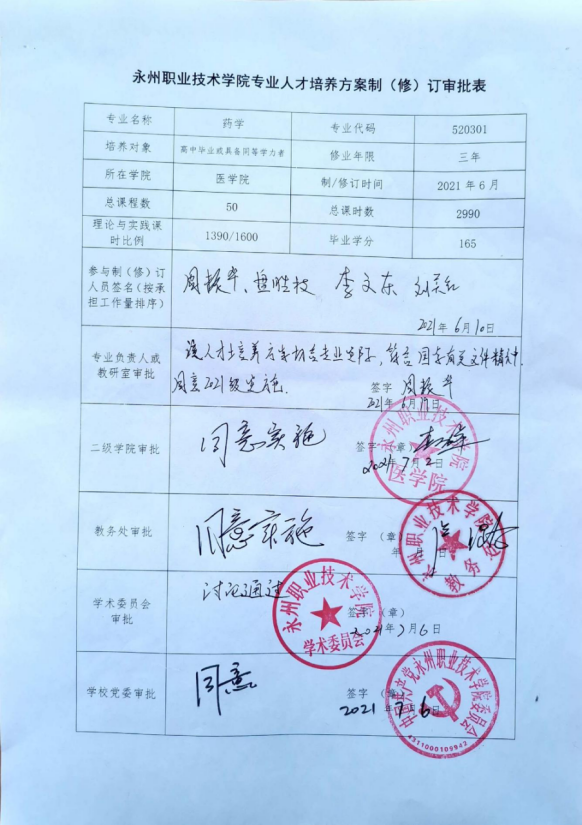 永州职业技术学院专业人才培养方案制（修）订审批表
专业名称 药学 专业代码 520301
培养对象 高中毕业或具备同等学力者 修业年限 三年
所在学院 医学院 制/修订时间 2021年6月
总课程数 50 总课时数 2990
理论与实践课
时比例 1390/1600 毕业学分 165
参与制（修）订
人员签名（按承
担工作量排序）
周振华、 李文东
2021年6月10日
专业负责人或
教研室审批
该人才培养方案切合专业实际，符合国家有关文件精神，
同意2021级实施。
签字 周振华
2021年6月 日
二级学院审批
同意实施
签字 （章）
2021年7月2日
永州职业技术学院
医学院
教务处审批
同意实施
签字 （章）
年 月 日
永州职业技术学院
教务处
学术委员会
审批
讨论通过
签字：（章）
2021年7月6日
永州职业技术学院
学术委员会
学校党委审批
同意
签字 （章）
2021年7月6日
中国共产党永州职业技术学院委员会
4311000109942